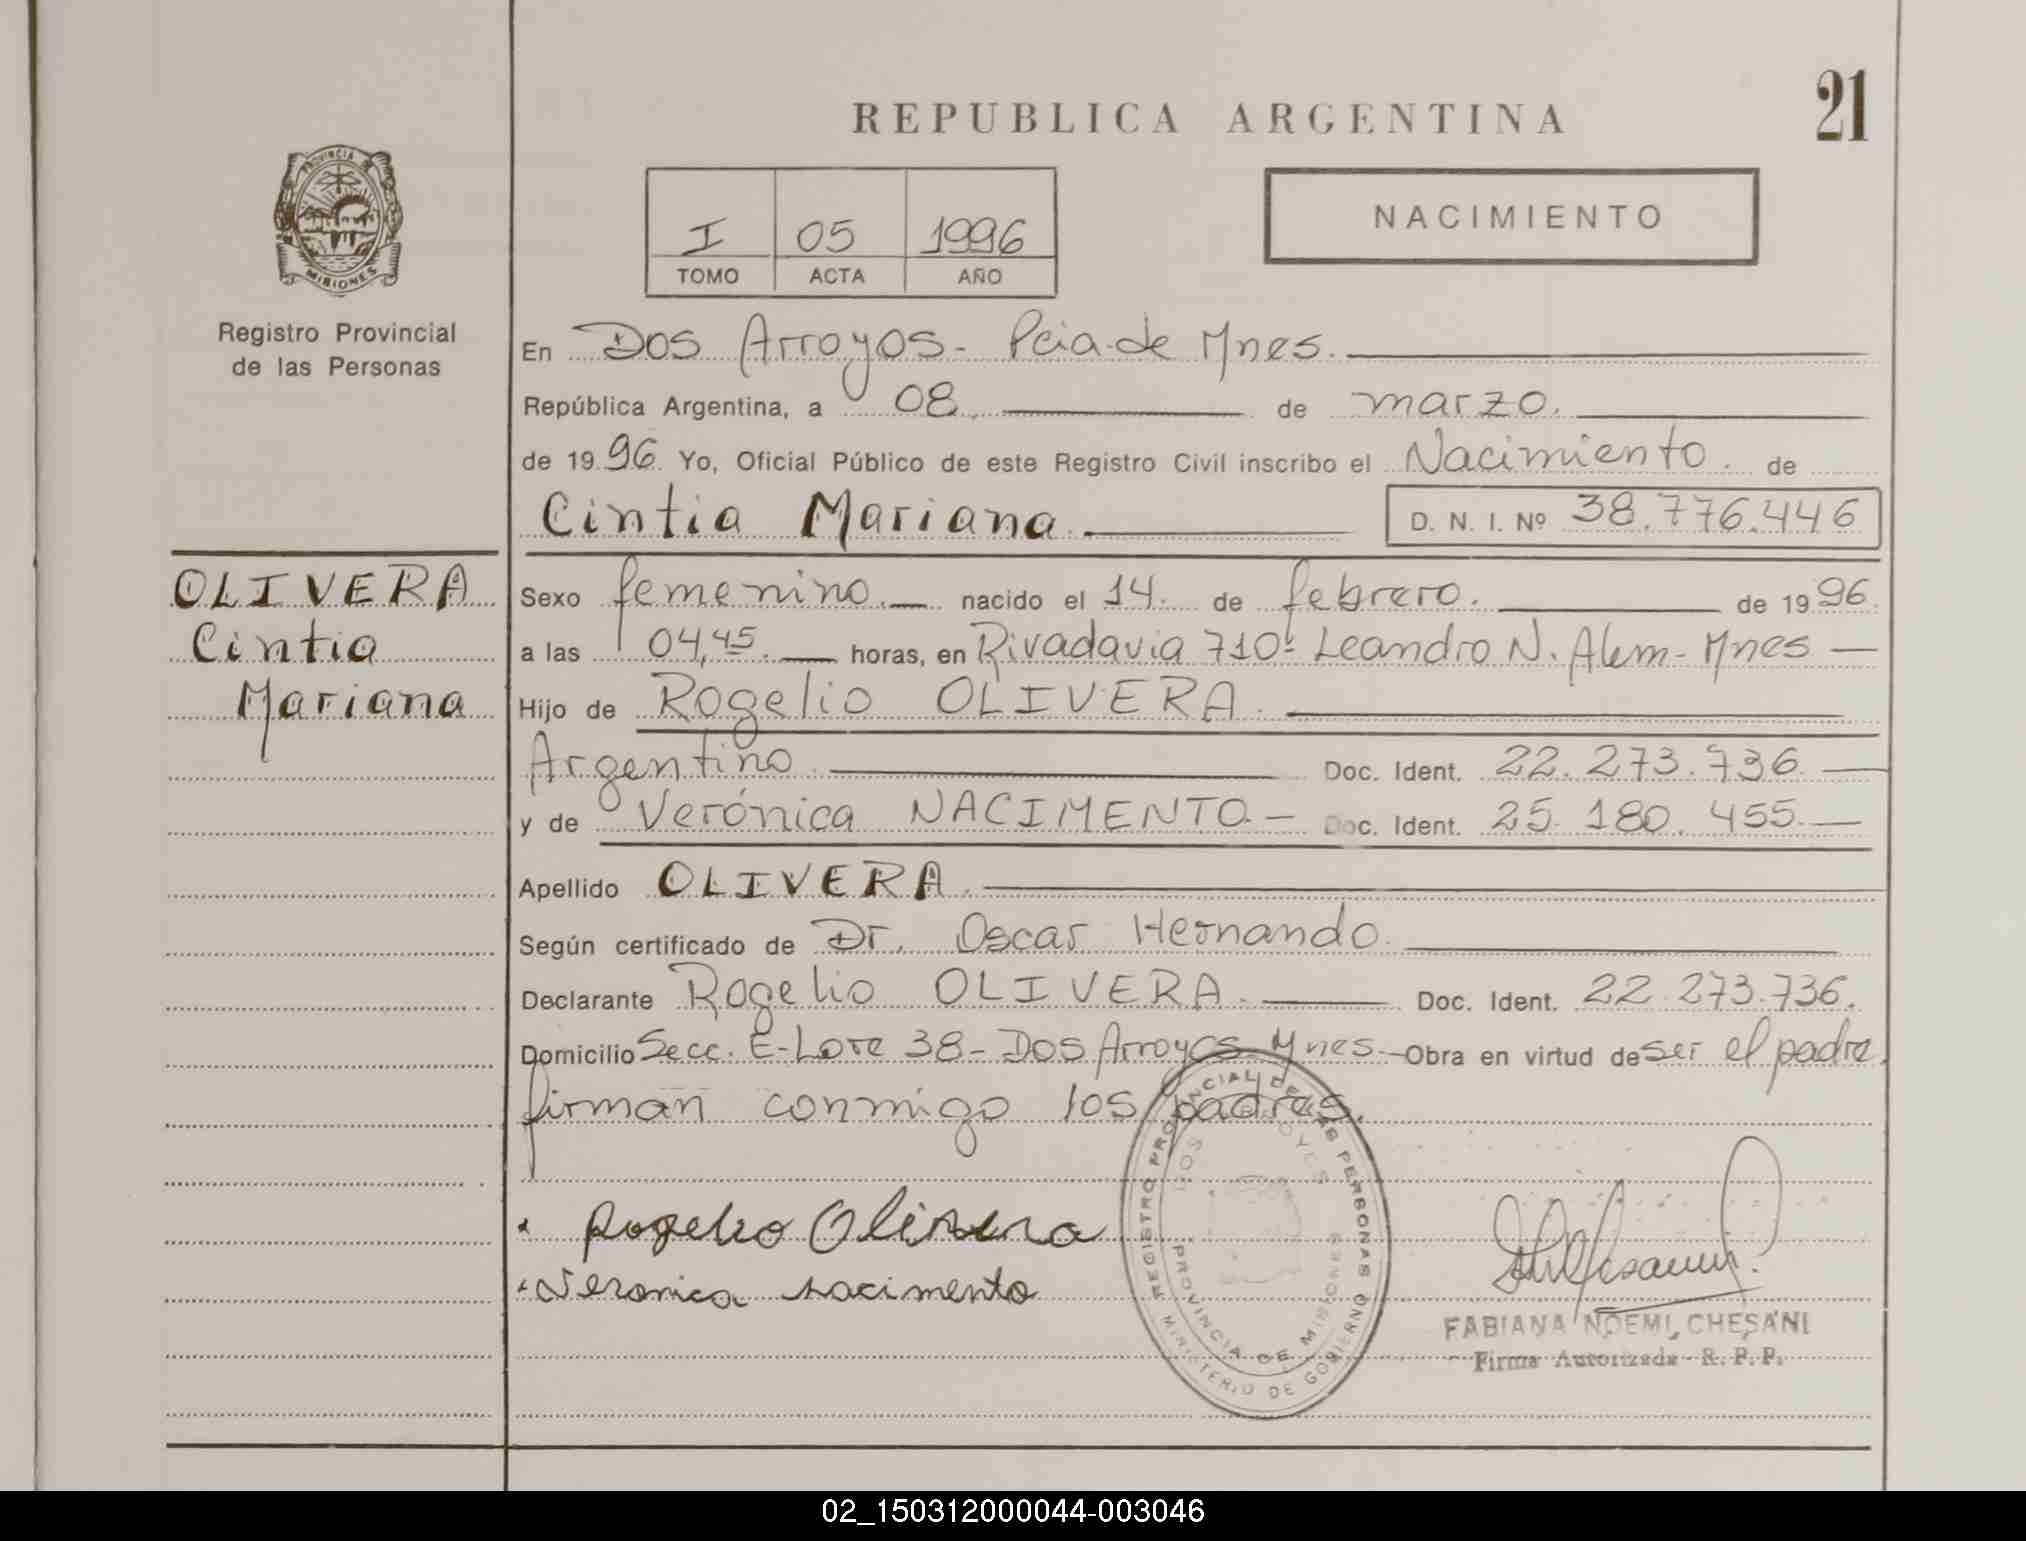 REPUBLICA ARGENTINA
21
PROVINCIA DE
MISIONES
Registro Provincial
de las Personas
I 05 1996
TOMO ACTA AÑO
NACIMIENTO
En Dos Arroyos - Pcia. de Mnes.
República Argentina, a 08 de marzo.
de 1996. Yo, Oficial Público de este Registro Civil inscribo el Nacimiento. de
Cintia Mariana. D. N. I. Nº 38.776.446
OLIVERA
Cintia
Mariana
Sexo femenino. nacido el 14. de febrero. de 1996.
a las 04,45. horas, en Rivadavia 710 - Leandro N. Alem - Mnes
Hijo de Rogelio OLIVERA.
Argentino. Doc. Ident. 22.273.736.
y de Verónica NACIMENTO. Doc. Ident. 25.180.455.
Apellido OLIVERA.
Según certificado de Dr. Oscar Hernando.
Declarante Rogelio OLIVERA. Doc. Ident. 22.273.736.
Domicilio Secc. E - Lote 38 - Dos Arroyos - Mnes - Obra en virtud de ser el padre,
firman conmigo los padres.
Rogelio Olivera
Veronica nacimento
REGISTRO PROVINCIAL DE LAS PERSONAS
MINISTERIO DE GOBIERNO
DOS ARROYOS
PROVINCIA DE MISIONES
FABIANA NOEMI CHESANI
Firma Autorizada - R. P. P.
02_150312000044-003046